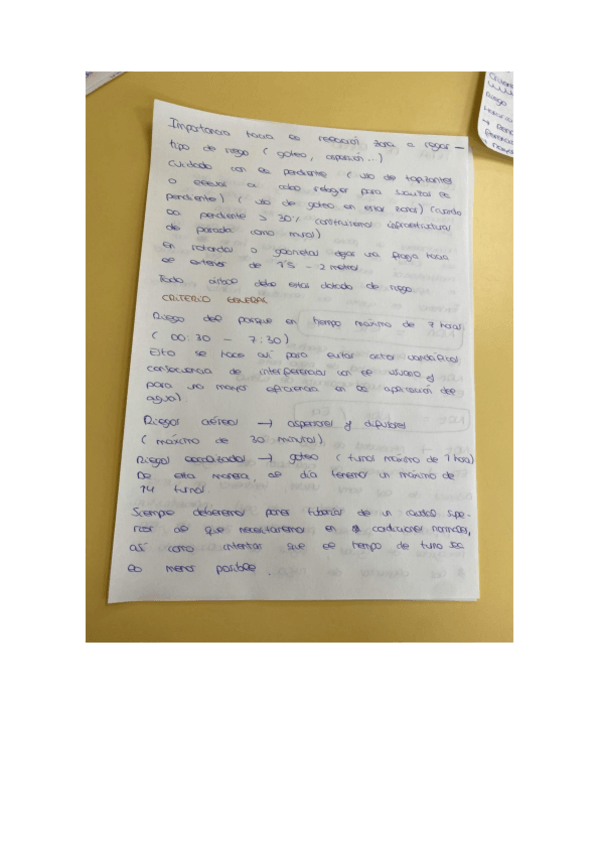 Importancia hacia la relación zona a regar –
tipo de riego ( goteo, aspersión...)
Cuidado con la pendiente ( uso de tapizantes
o elevar a cabo relagar para suavitar la
pendiente ) ( uso de goteo en estas zonas) (cuando
la pendiente > 30% construimos infraestructura
de parada como muros)
En rotondas o glorietas dejar una franja hacia
el exterior de 1'5 - 2 metros.
Todo árbol debe estar dotado de riego.
CRITERIO GENERAL
Riego del parque en tiempo máximo de 7 horas
( 00:30 - 7:30 )
Esto se hace así para evitar actos vandálicos,
consecuencia de interferencias con el usuario y
para una mayor eficiencia en la aplicación del
agua)
Riegos aéreos → aspersores y difusores
( máximo de 30 minutos)
Riegos localizados → goteo ( turnos máximo de 1 hora)
De esta manera, al día tenemos un máximo de
14 turnos
Siempre deberemos poner tuberías de un caudal supe-
rior al que necesitaremos en condiciones normales,
así como intentar que el tiempo de turno sea
lo menor posible.
Riego
→